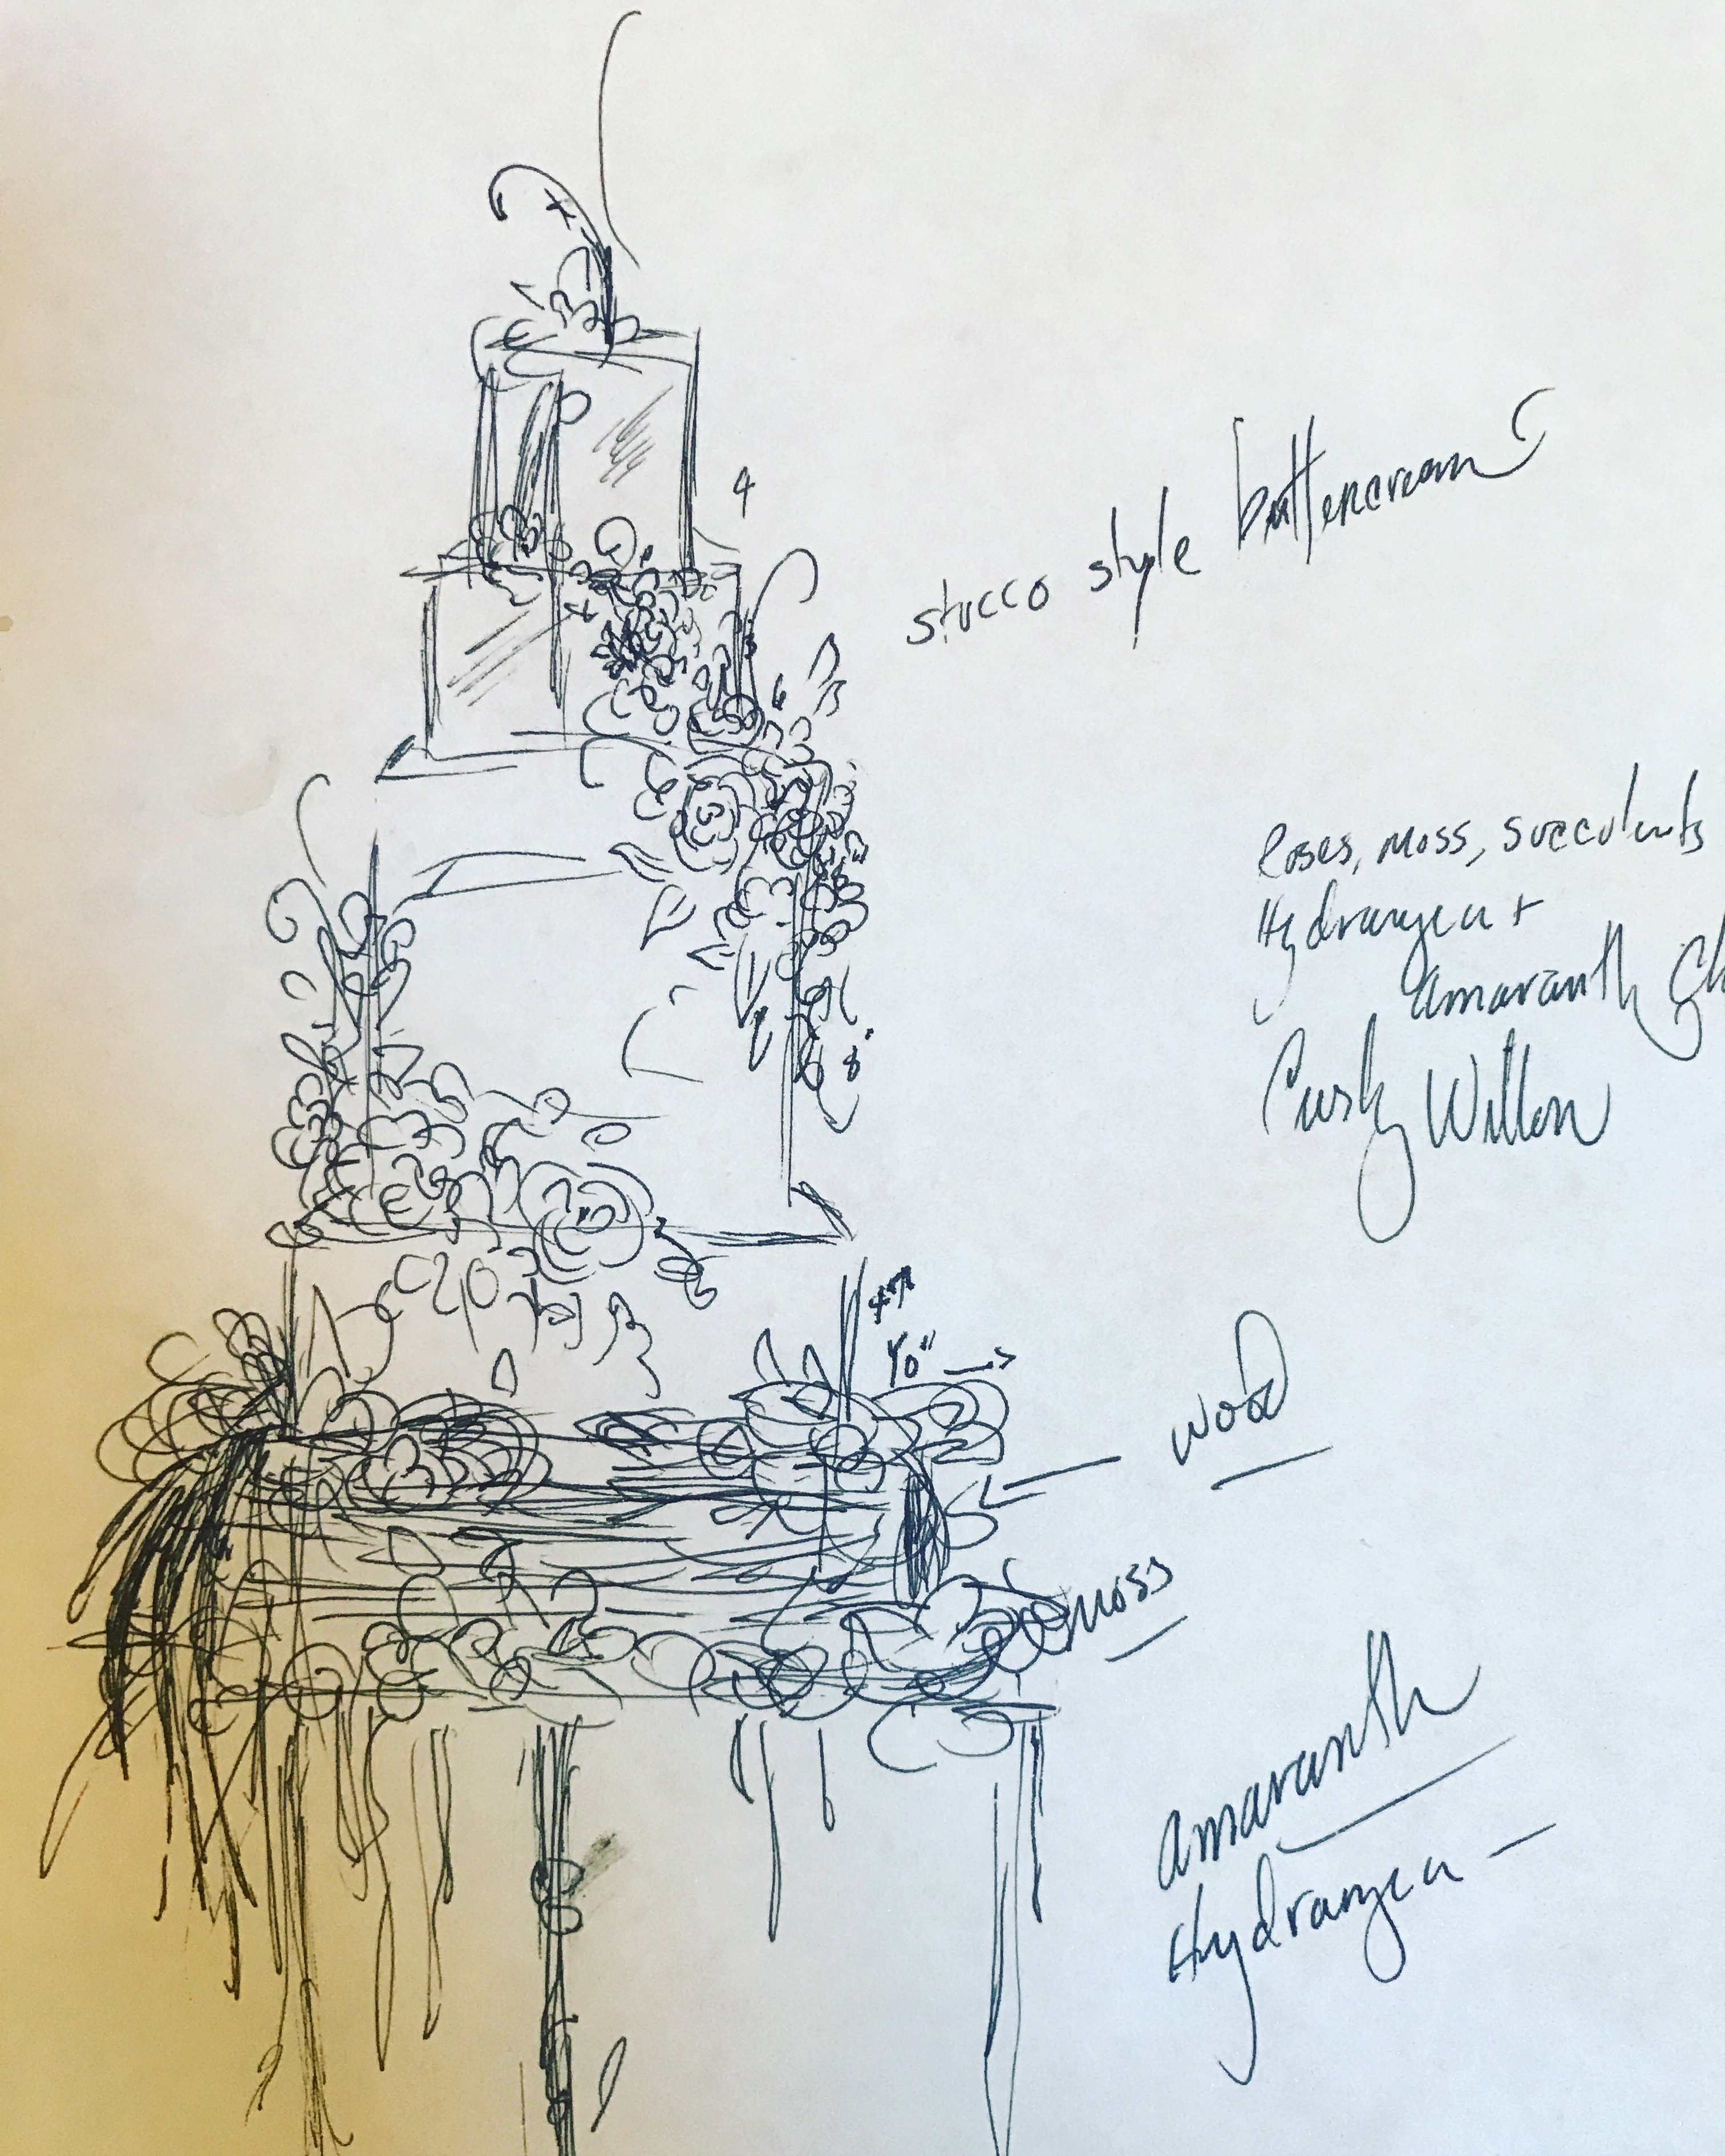 4
stucco style buttercream
6
Roses, moss, succulents
Hydrangea +
amaranth
Curly Willow
8"
10"
wood
moss
amaranth
Hydrangea